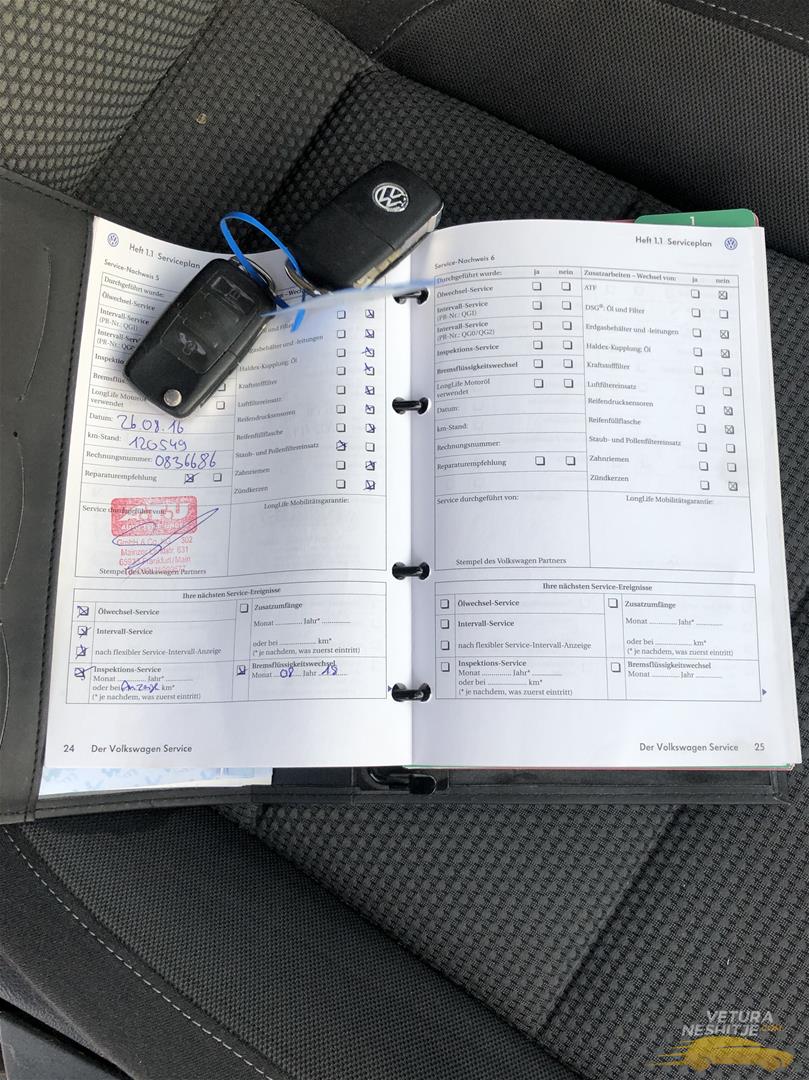 1
Heft 1.1 Serviceplan
Service-Nachweis 5
Durchgeführt wurde:
Ölwechsel-Service
Intervall-Service
(PR-Nr.: QG1)
Inspektions
LongLife Motoröl
verwendet
Datum: 26.08.16
km-Stand: 120549
Rechnungsnummer: 0836686
Reparaturempfehlung
Service durchgeführt von:
302
Mainzer Landstr. 631
Frankfurt/Main
Stempel des Volkswagen Partners
Haldex-Kupplung: Öl
Kraftstofffilter
Luftfiltereinsatz
Reifendrucksensoren
Reifenfüllflasche
Staub- und Pollenfiltereinsatz
Zahnriemen
Zündkerzen
LongLife Mobilitätsgarantie:
Ihre nächsten Service-Ereignisse
Ölwechsel-Service
Intervall-Service
nach flexibler Service-Intervall-Anzeige
Inspektions-Service
Monat ............... Jahr* ...............
oder bei Anzeige km*
(* je nachdem, was zuerst eintritt)
Zusatzumfänge
Monat ............... Jahr* ...............
oder bei ............... km*
(* je nachdem, was zuerst eintritt)
Bremsflüssigkeitswechsel
Monat 08 Jahr 18
24 Der Volkswagen Service
Heft 1.1 Serviceplan
Service-Nachweis 6
Durchgeführt wurde: ja nein
Ölwechsel-Service
Intervall-Service
(PR-Nr.: QG1)
Intervall-Service
(PR-Nr.: QG0/QG2)
Inspektions-Service
Bremsflüssigkeitswechsel
LongLife Motoröl
verwendet
Datum:
km-Stand:
Rechnungsnummer:
Reparaturempfehlung
Service durchgeführt von:
Stempel des Volkswagen Partners
Zusatzarbeiten – Wechsel von: ja nein
ATF
DSG®: Öl und Filter
Erdgasbehälter und -leitungen
Haldex-Kupplung: Öl
Kraftstofffilter
Luftfiltereinsatz
Reifendrucksensoren
Reifenfüllflasche
Staub- und Pollenfiltereinsatz
Zahnriemen
Zündkerzen
LongLife Mobilitätsgarantie:
Ihre nächsten Service-Ereignisse
Ölwechsel-Service
Intervall-Service
nach flexibler Service-Intervall-Anzeige
Inspektions-Service
Monat ............... Jahr* ...............
oder bei ............... km*
(* je nachdem, was zuerst eintritt)
Zusatzumfänge
Monat ............... Jahr* ...............
oder bei ............... km*
(* je nachdem, was zuerst eintritt)
Bremsflüssigkeitswechsel
Monat ............... Jahr ...............
Der Volkswagen Service 25
VETURA
NESHITJE.COM